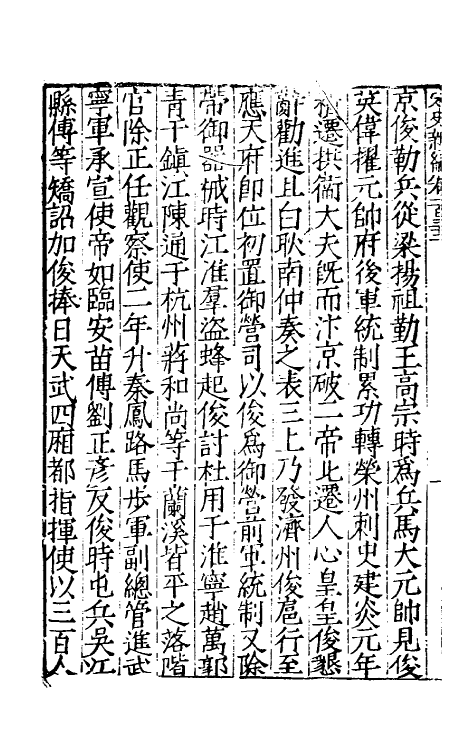 宋史新編卷一百三十三
京俊勒兵從梁揚祖勤王高宗時為兵馬大元帥見俊
英偉擢元帥府後軍統制累功轉榮州刺史建炎元年
遷拱衞大夫既而汴京破二帝北遷人心皇皇俊懇
辭勸進且白耿南仲奏之表三上乃發濟州俊扈行至
應天府即位初置御營司以俊為御營前軍統制又除
帶御器械時江淮羣盜蜂起俊討杜用于淮寧趙萬郭
青于鎮江陳通于杭州蔣和尚等于蘭溪皆平之落階
官除正任觀察使二年升秦鳳路馬步軍副總管進武
寧軍承宣使帝如臨安苗傅劉正彥反俊時屯兵吳江
縣傅等矯詔加俊捧日天武四厢都指揮使以三百人